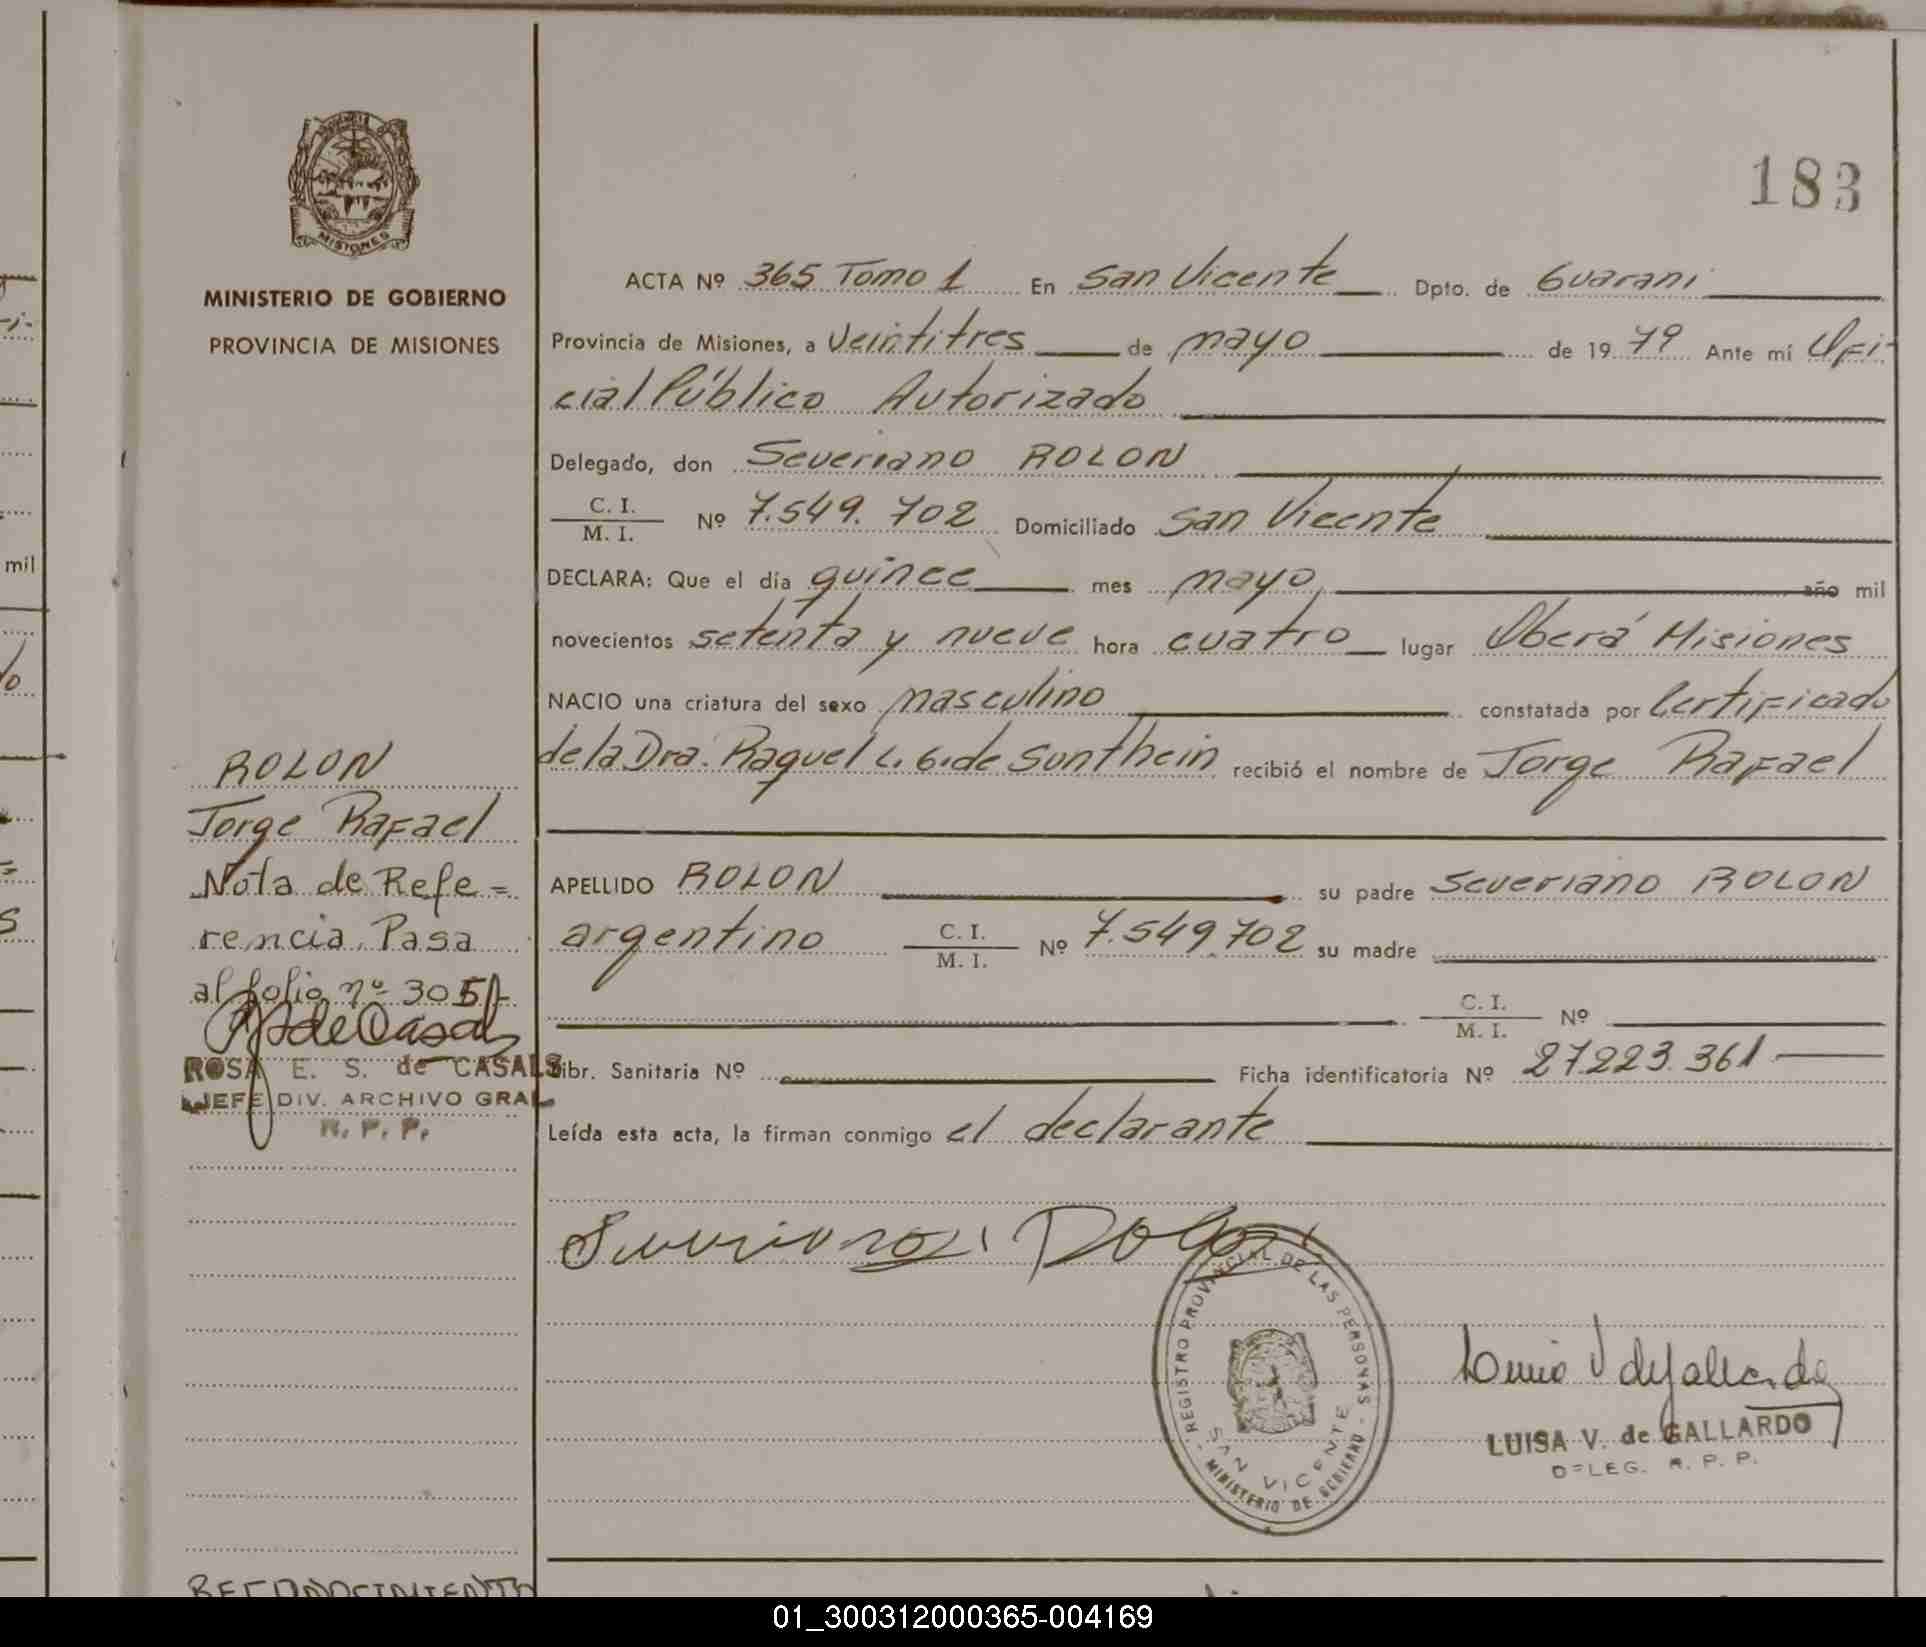 183
MISIONES
MINISTERIO DE GOBIERNO
PROVINCIA DE MISIONES
ACTA Nº 365 Tomo 1 En San Vicente Dpto. de Guarani
Provincia de Misiones, a Veintitres de mayo de 19 79 Ante mí Ofi-
cial Público Autorizado
Delegado, don Severiano ROLON
C. I.
M. I. Nº 7.549.702 Domiciliado San Vicente
DECLARA: Que el día quince mes mayo año mil
novecientos setenta y nueve hora cuatro lugar Oberá Misiones
NACIO una criatura del sexo masculino constatada por Certificado
de la Dra. Raquel L. G. de Sunthein recibió el nombre de Jorge Rafael
APELLIDO ROLON su padre Severiano ROLON
argentino C. I.
M. I. Nº 7.549.702 su madre
C. I.
M. I. Nº
Libr. Sanitaria Nº Ficha identificatoria Nº 27.223.361
Leída esta acta, la firman conmigo el declarante
ROLON
Jorge Rafael
Nota de Refe=
rencia. Pasa
al folio nº 305
ROSA E. S. de CASALS
JEFE DIV. ARCHIVO GRAL
R. P. P.
REGISTRO PROVINCIAL DE LAS PERSONAS
SAN VICENTE
MINISTERIO DE GOBIERNO
LUISA V. de GALLARDO
DELEG. R. P. P.
RECONOCIMIENTO
mil
01_300312000365-004169